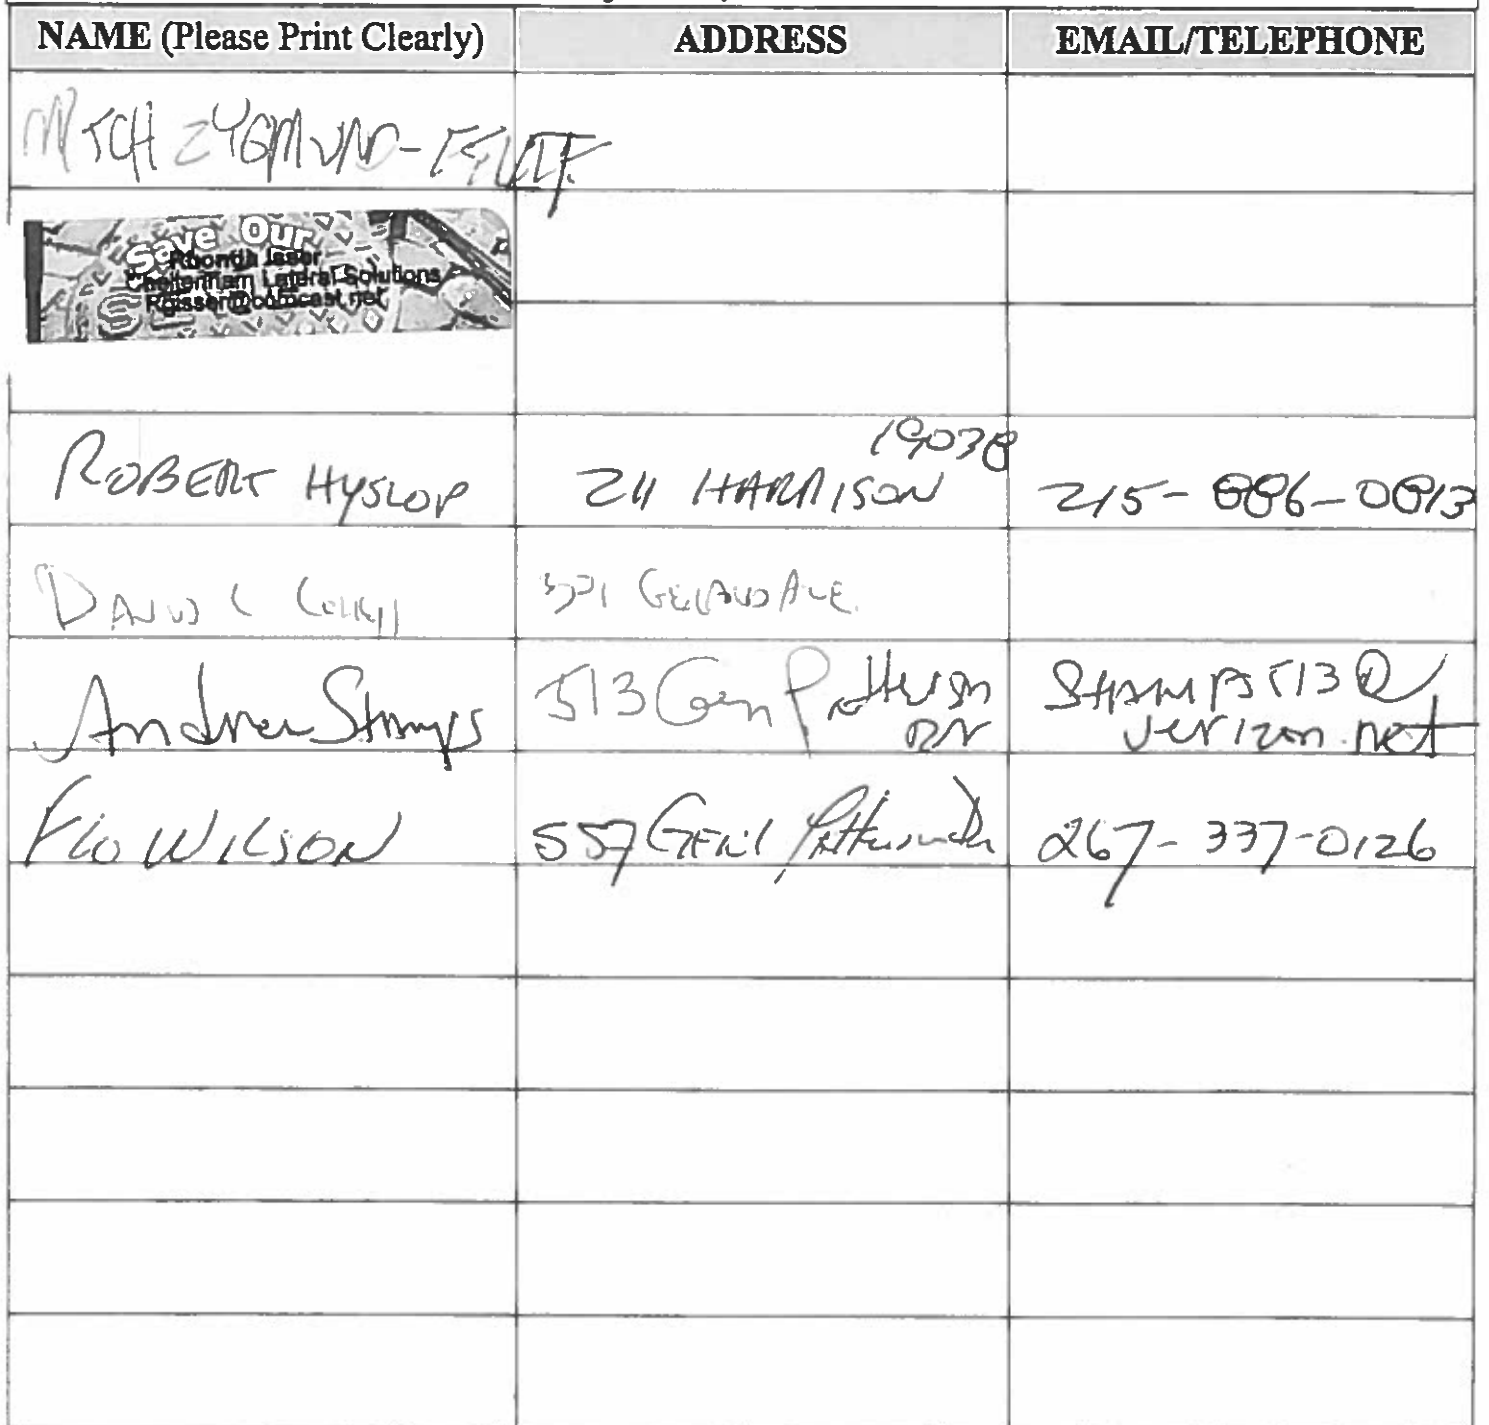 NAME (Please Print Clearly) ADDRESS EMAIL/TELEPHONE
MITCH ZYGMUND-
Save Our
Rhonda Isser
Cheltenham Lateral Solutions
Rgisser@comcast.net
19038
ROBERT HYSLOP 211 HARRISON 215-886-0813
DAVID L AVE.
Andrew Stamps 513 Gen Patterson STAMPS513@
DR verizon.net
Flo WILSON 557 GEN'l Patterson Dr 267-337-0126